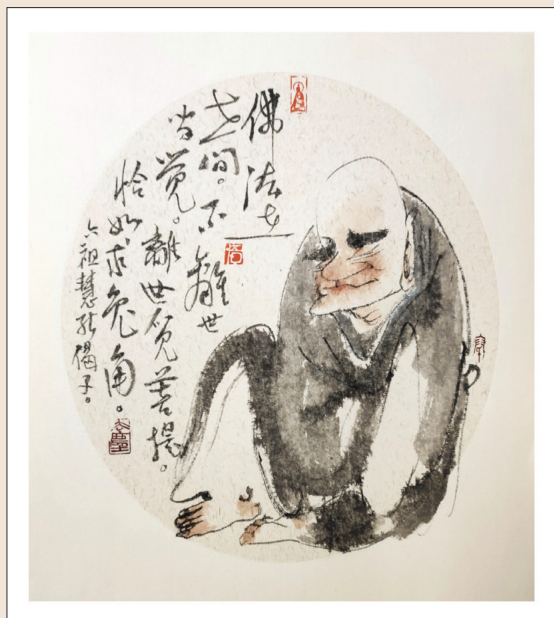 佛法在
世间。不離世
间觉。離世觅菩提。
恰如求兔角。
六祖慧能偈子。